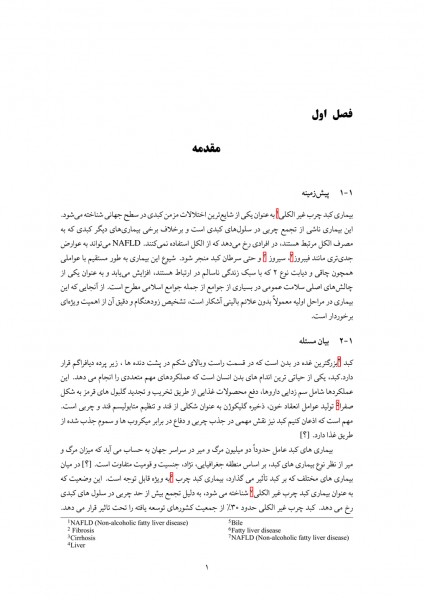 فصل اول
مقدمه
۱-۱ پیش‌زمینه
بیماری کبد چرب غیر الکلی۱ به‌عنوان یکی از شایع‌ترین اختلالات مزمن کبدی در سطح جهانی شناخته می‌شود.
این بیماری ناشی از تجمع چربی در سلول‌های کبدی است و برخلاف برخی بیماری‌های دیگر کبدی که به
مصرف الکل مرتبط هستند، در افرادی رخ می‌دهد که از الکل استفاده نمی‌کنند. NAFLD می‌تواند به عوارض
جدی‌تری مانند فیبروز۲، سیروز ۳ و حتی سرطان کبد منجر شود. شیوع این بیماری به طور مستقیم با عواملی
همچون چاقی و دیابت نوع ۲ که با سبک زندگی ناسالم در ارتباط هستند، افزایش می‌یابد و به عنوان یکی از
چالش‌های اصلی سلامت عمومی در بسیاری از جوامع از جمله جوامع اسلامی مطرح است. از آنجایی که این
بیماری در مراحل اولیه معمولاً بدون علائم بالینی آشکار است، تشخیص زودهنگام و دقیق آن از اهمیت ویژه‌ای
برخوردار است.
۲-۱ بیان مسئله
کبد ۴بزرگترین غده در بدن است که در قسمت راست وبالای شکم در پشت دنده ها ، زیر پرده دیافراگم قرار
دارد.کبد، یکی از حیاتی ترین اندام های بدن انسان است که عملکردهای مهم متعددی را انجام می دهد. این
عملکردها شامل سم زدایی داروها، دفع محصولات غذایی از طریق تخریب و تجدید گلبول های قرمز به شکل
صفرا۵ تولید عوامل انعقاد خون، ذخیره گلیکوژن به عنوان شکلی از قند و تنظیم متابولیسم قند و چربی است.
مهم است که اذعان کنیم کبد نیز نقش مهمی در جذب چربی و دفاع در برابر میکروب ها و سموم جذب شده از
طریق غذا دارد. [؟]
بیماری های کبد عامل حدوداً دو میلیون مرگ و میر در سراسر جهان به حساب می آید که میزان مرگ و
میر از نظر نوع بیماری های کبد، بر اساس منطقه جغرافیایی، نژاد، جنسیت و قومیت متفاوت است. [؟] در میان
بیماری های مختلفی که بر کبد تأثیر می گذارد، بیماری کبد چرب ۶به ویژه قابل توجه است. این وضعیت که
به عنوان بیماری کبد چرب غیر الکلی۷ شناخته می شود، به دلیل تجمع بیش از حد چربی در سلول های کبدی
رخ می دهد. کبد چرب غیر الکلی حدود ۳۰٪ از جمعیت کشورهای توسعه یافته را تحت تاثیر قرار می دهد.
1NAFLD (Non-alcoholic fatty liver disease)
2 Fibrosis
3Cirrhosis
4Liver
5Bile
6Fatty liver disease
7NAFLD (Non-alcoholic fatty liver disease)
۱